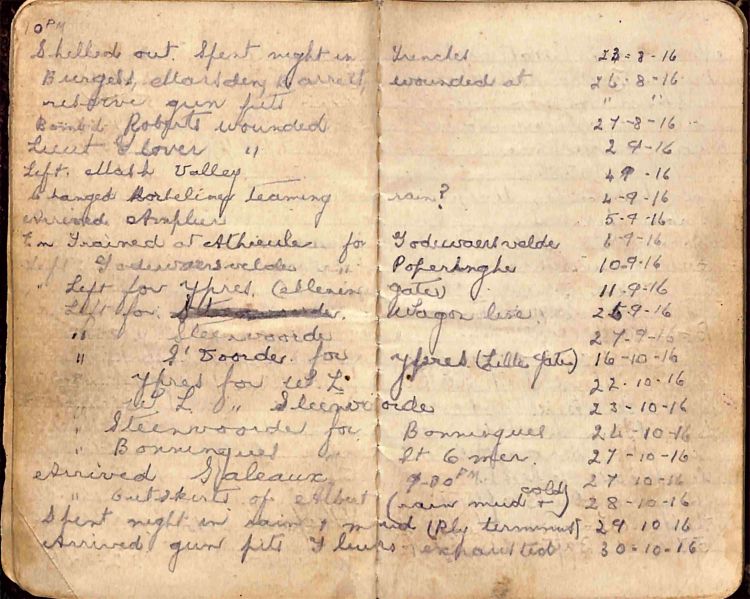 10 PM
Shelled out. Spent night in Trenches 23-8-16
Burgess, Marsden, Barrett, wounded at 26-8-16
reserve gun pits " "
Bomb'd Roberts wounded 27-8-16
Lieut Glover " 2 9-16
Left. Mash Valley 4 9-16
Changed teaming rain? 4-9-16
Arrived Amplier 5-9-16
En Trained at Athieule for Godewaersvelde 6-9-16
Left Godewaersvelde " Poperhnghe 10.9-16
" Left for Ypres. (Menin gates) 11-9-16
Left for Wagon line. 25-9-16
" Steenvoorde 27-9-16
" S'Voorde. for Ypres (Lille gate) 16-10-16
Ypres for W. L. 22-10-16
" W. L. " Steenvoorde 23-10-16
" Steenvoorde for Bonningues 24-10-16
" Bonningues St Omer. 27-10-16
Arrived Galeaux 9-30 PM. 27 10-16
" Outskirts of Albert (rain mud + cold) 28-10-16
Spent night in rain & mud (Rly terminus) 29 10 16
Arrived gun pits Fleurs exhausted 30-10-16